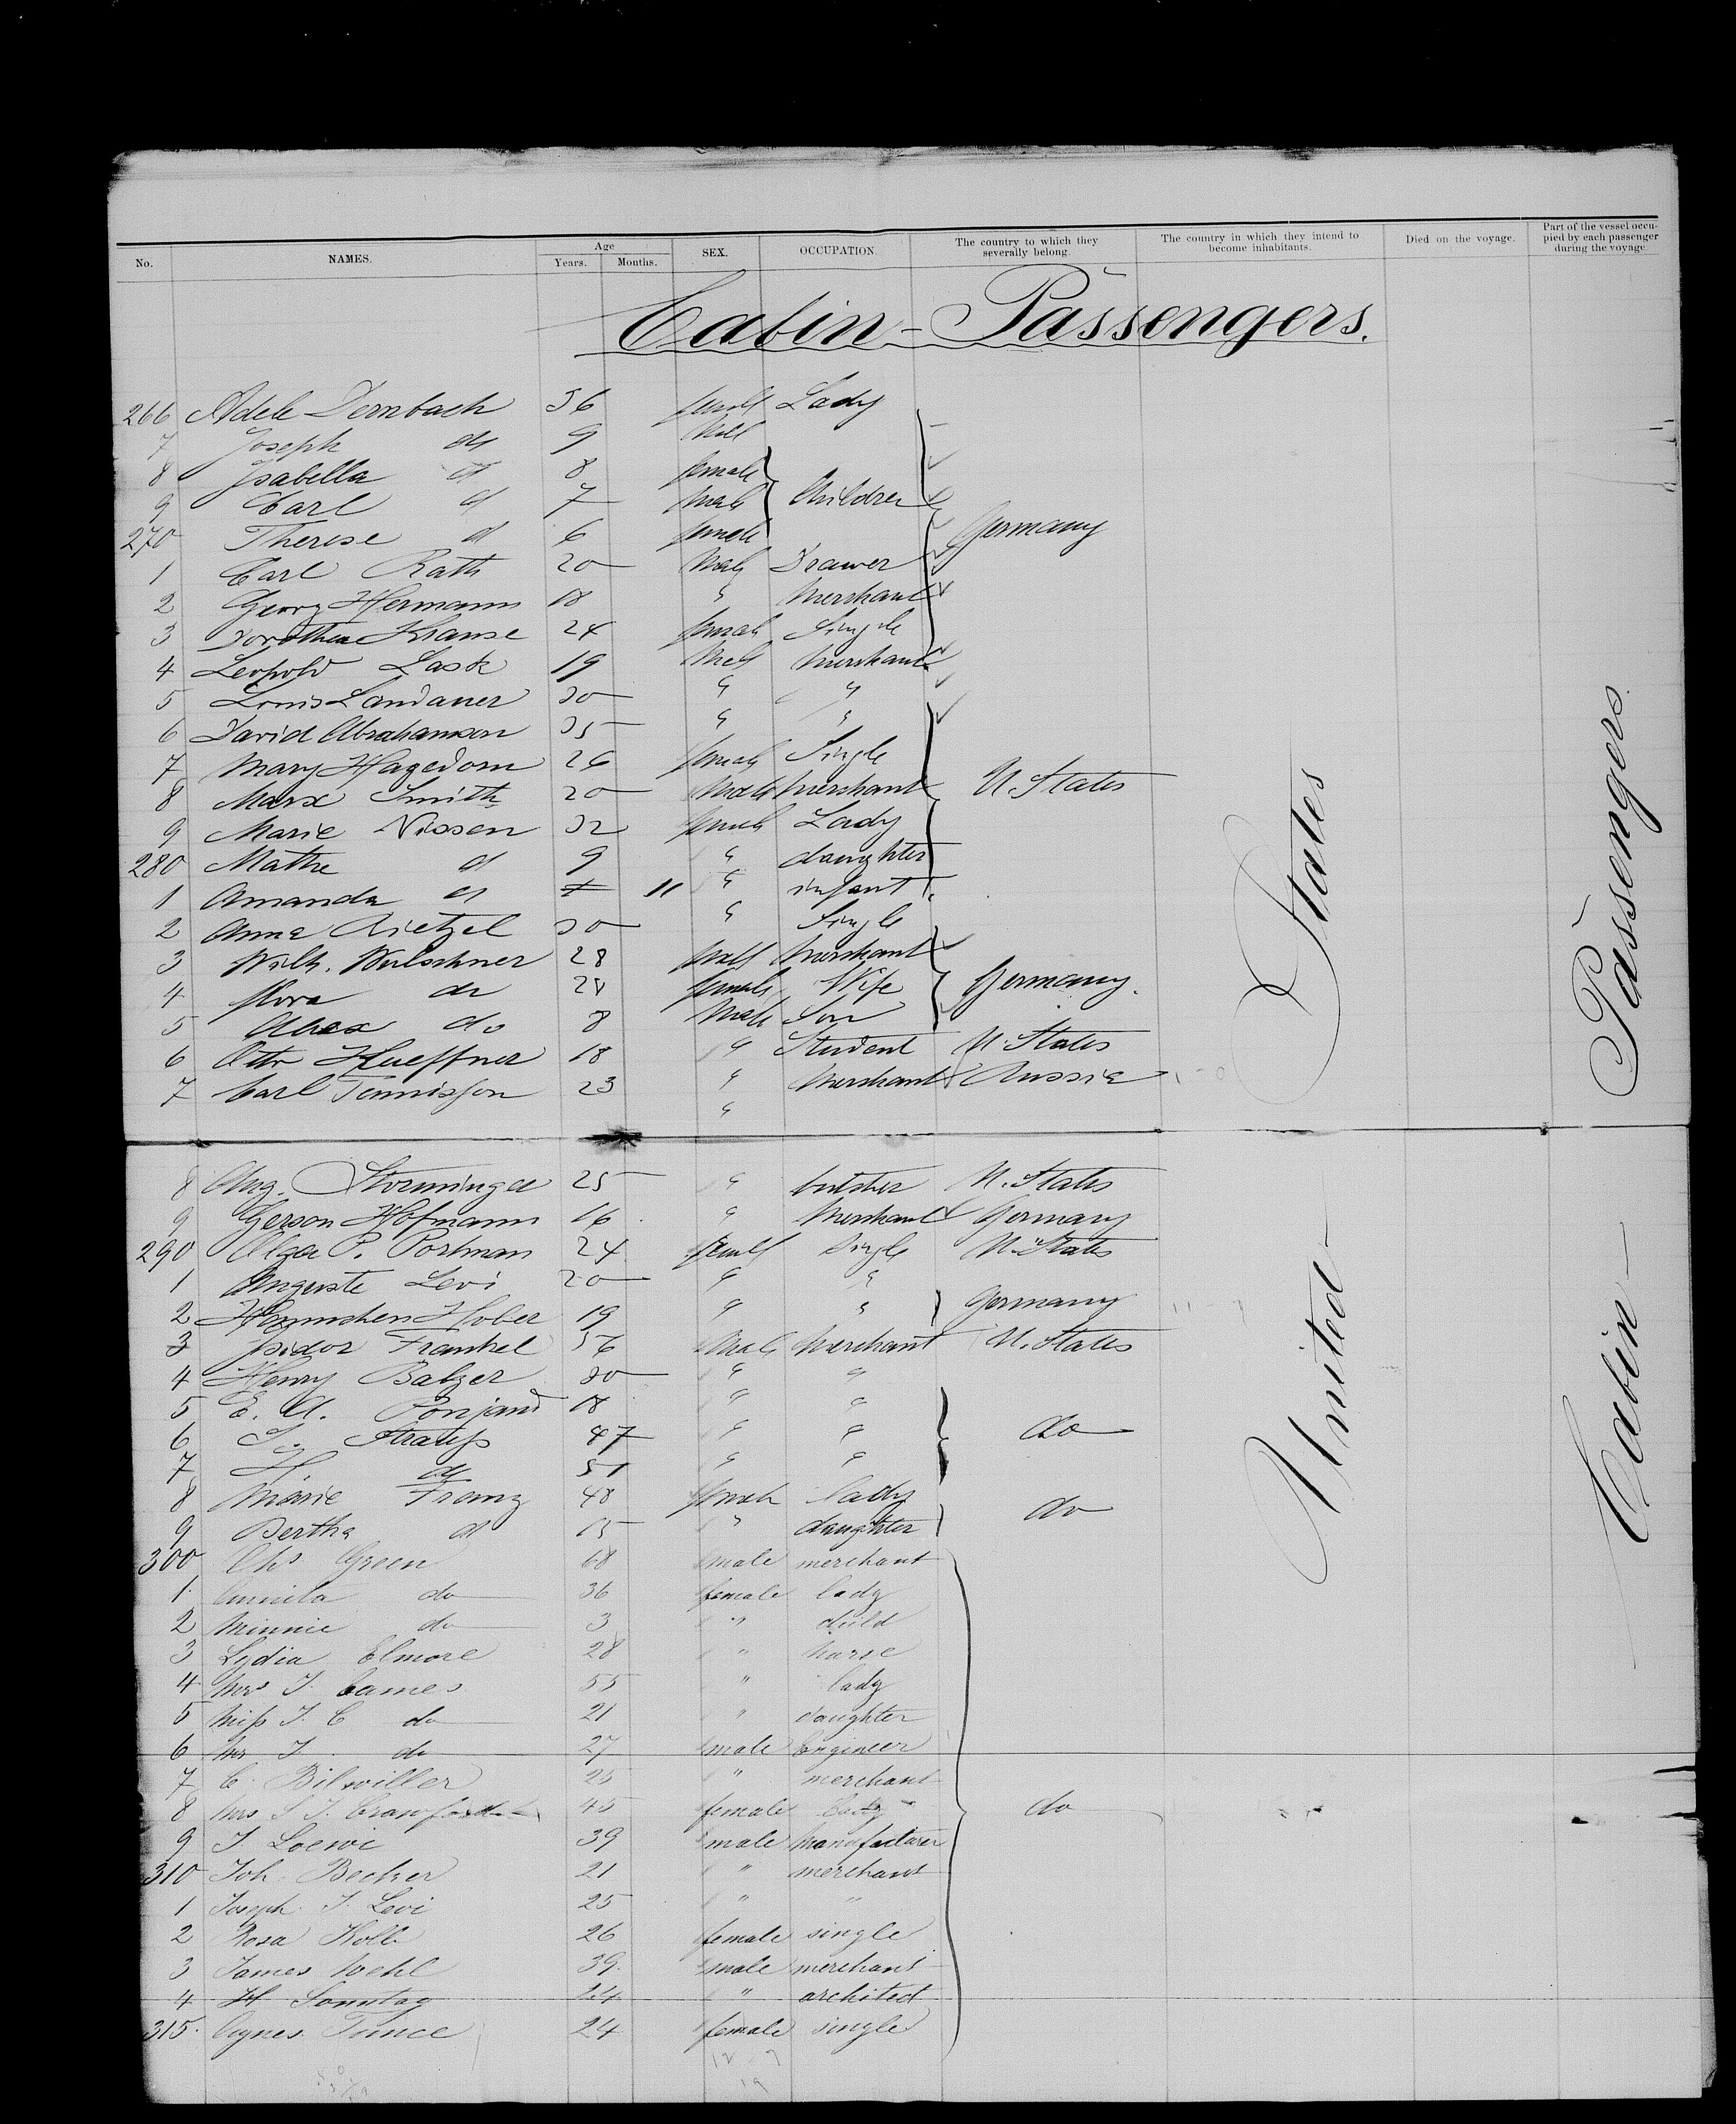 No. NAMES. Age Years. Months. SEX. OCCUPATION. The country to which they severally belong. The country in which they intend to become inhabitants. Died on the voyage. Part of the vessel occupied by each passenger during the voyage.
Cabin-Passengers.
266 Adele Dernbach 36 female Lady
7 Joseph do 9 Male
8 Isabella d 8 female
9 Carl d 7 Male Children
270 Therese d 6 female Germany
1 Carl Rath 20 Male Drawer
2 Georg Hermann 18 " Merchant
3 Dorothea Krause 24 female Single
4 Leopold Lask 19 Male Merchant
5 Louis Landauer 30 " "
6 David Abrahamson 35 " "
7 Mary Hagedorn 26 female Single
8 Marx Smith 20 Male Merchant U. States
9 Marie Nissen 32 female Lady
280 Mathe d 9 " daughter
1 Amanda d 11 " infant
2 Anna Rietzel 30 " Single
3 Wilh. Wulschner 28 Male Merchant
4 flora do 28 female Wife Germany.
5 Alex do 8 Male Son
6 Otto Hueffner 18 " Student U. States
7 Carl Tennisson 23 " Merchant Russia
"
8 Aug. Storminger 25 " butcher U. States
9 Gerson Hofmann 16 " Merchant Germany
290 Olga P. Portman 24 female Single U. States
1 Auguste Levi 20 " "
2 Hannchen Hober 19 " " Germany
3 Isidor Frankel 56 Male Merchant U. States
4 Henry Balzer 30 " "
5 E. A. 18 " "
6 S. Strauss 47 " " do
7 H. do 51 " "
8 Marie Franz 48 female lady
9 Bertha d 15 " daughter do
300 Chs Green 68 male merchant
1 do 36 female lady
2 Minnie do 3 " child
3 Lydia Elmore 28 " nurse
4 Mrs J. Cames 55 " lady
5 Miss J. C do 21 " daughter
6 Mr J. do 27 male Engineer
7 C. Bilwiller 25 " merchant
8 Mrs S. J. Cranford 45 female Lady do
9 J. Loewi 39 male Manufacturer
310 Joh. Becker 21 " merchant
1 Joseph J. Levi 25 " "
2 Rosa Kolb 26 female single
3 James Wehl 39 male merchant
4 H Sonntag 24 " architect
315. Agnes Tunce 24 female single
12 7
19
United States
Cabin Passengers.